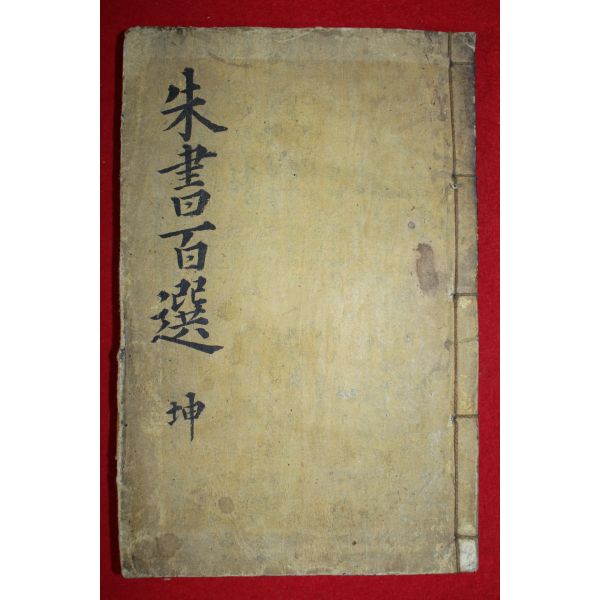 朱書百選
坤